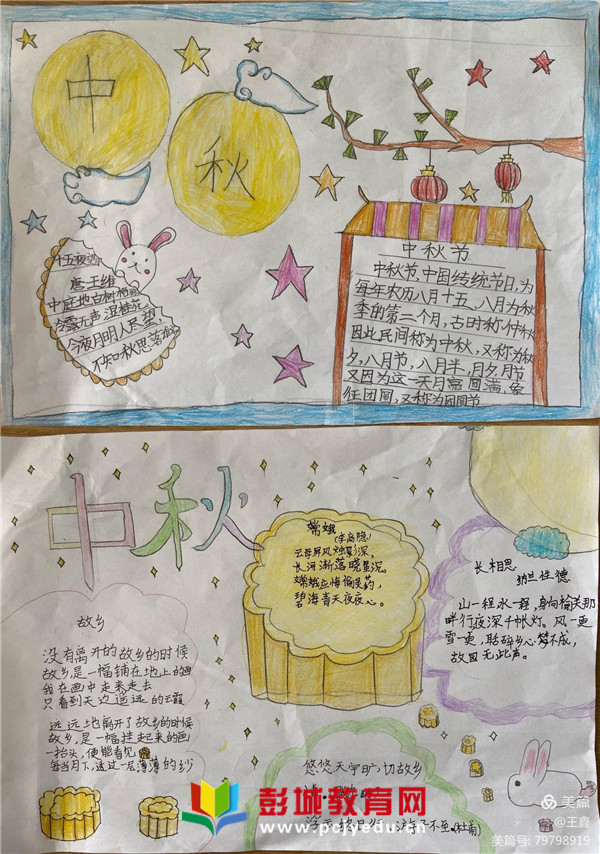 中
秋
十五夜
唐王维
中庭地白树栖
冷露无声湿桂花
今夜月明人尽望
不知秋思落
中秋节
中秋节,中国传统节日,为
每年农历八月十五、八月为秋
季的第二个月,古时称仲秋
因此民间称为中秋,又称为秋
夕,八月节,八月半,月夕,月节
又因为这一天月亮圆满,象
征团圆,又称为团圆节
中秋
嫦娥
(李商隐)
云母屏风烛影深,
长河渐落晓星沉
嫦娥应悔偷灵药,
碧海青天夜夜心。
长相思
纳兰性德
山一程水一程,身向榆关那
畔行夜深千帐灯。风一更
雪一更,聒碎乡心梦不成,
故园无此声。
故乡
没有离开的故乡的时候
故乡是一幅铺在地上的画
我在画中走来走去
只看到天边遥远的云霞
远远地离开了故乡的时候
故乡,是一幅挂起来的画
一抬头,便能看见
每当月下,透过一层薄薄的纱
悠悠天宇旷,切故乡
浮云终日行,游子不至.(杜甫)
彭城教育网
www.pcjyedu.cn
美篇
@王鑫
美篇号: 79798919